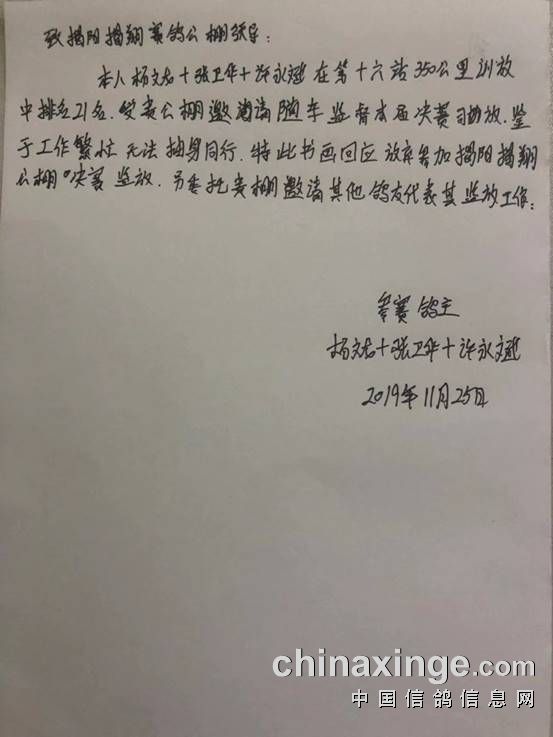 致揭阳揭翔赛鸽公棚领导：
本人杨文龙+张卫华+许永 在第十六站350公里训放
中排名21名.受贵公棚邀请随车监督本届决赛司放.鉴
于工作繁忙无法抽身同行.特此书面回应放弃参加揭阳揭翔
公棚"决赛监放.另委托贵棚邀请其他鸽友代表其监放工作：
参赛鸽主
杨文龙+张卫华+许永
2019年11月25日
chinaxinge.com
中国信鸽信息网